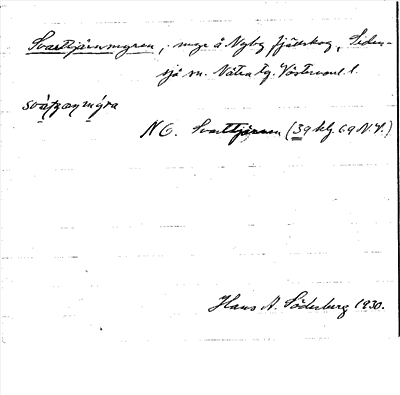 Svarttjärnmyren, myr å Nyby fjällskog, Siden-
sjö sn. Nätra tg. Västernorrl. l.
svàṭṭaṇmýra
NO. Svarttjärnen (39 klg. 69 N.V.)
Hans A. Söderberg 1930.